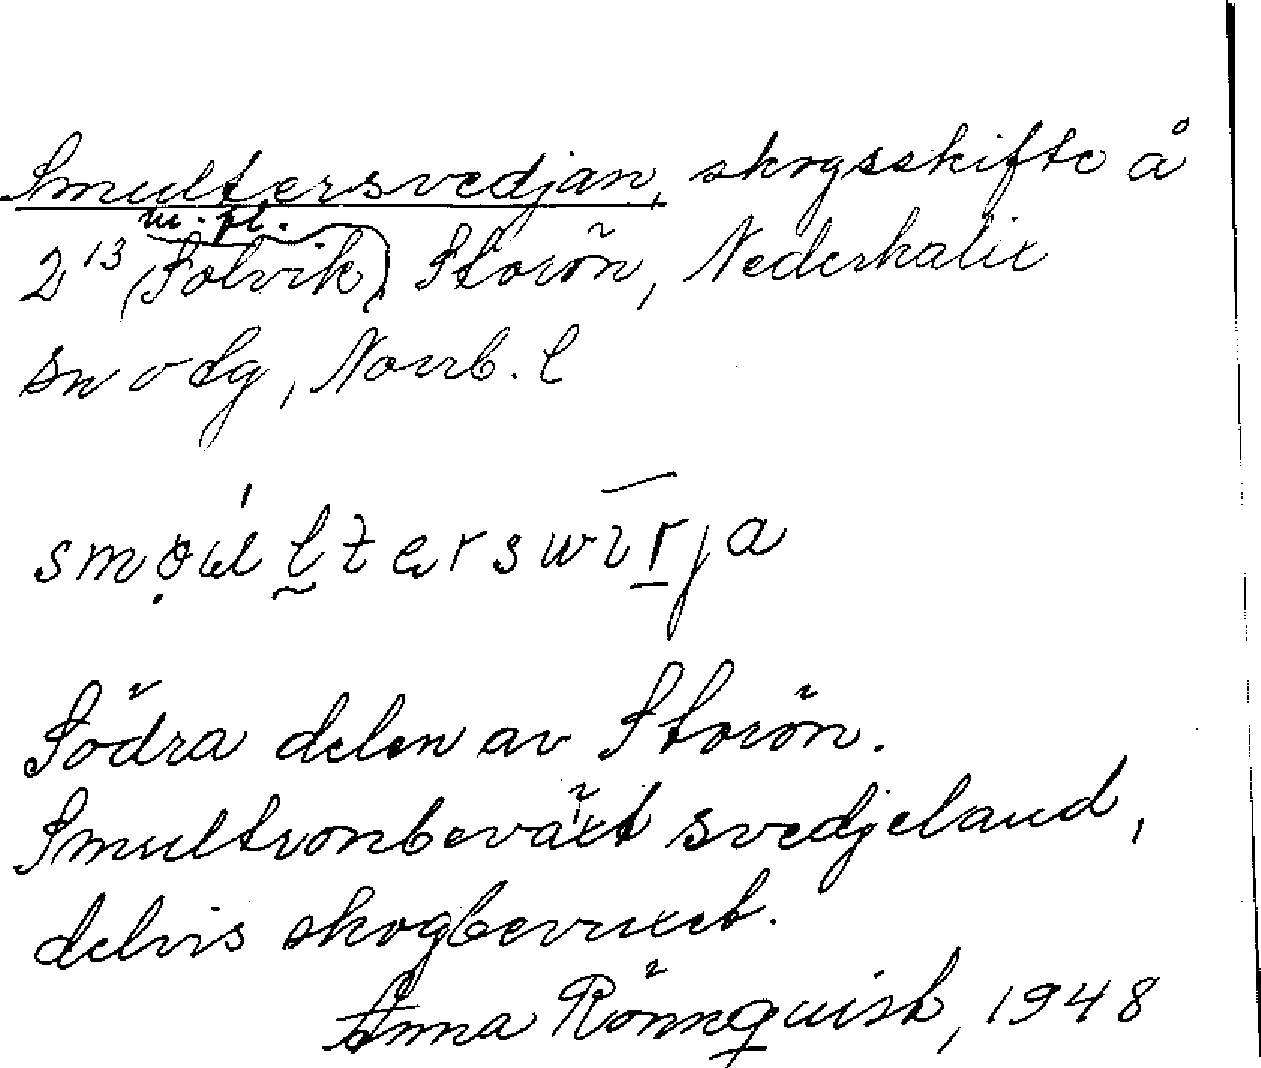 Smultersvedjan, skogsskifte å
2¹³ (Solvik m. fl.) Storön, Nederkalix
sn o dg, Norrb. l
smọu̇ĺl̰terswīr̲ja
Södra delen av Storön.
Smultronbeväxt svedjeland,
delvis skogbevuxet.
Anna Rönnquist, 1948